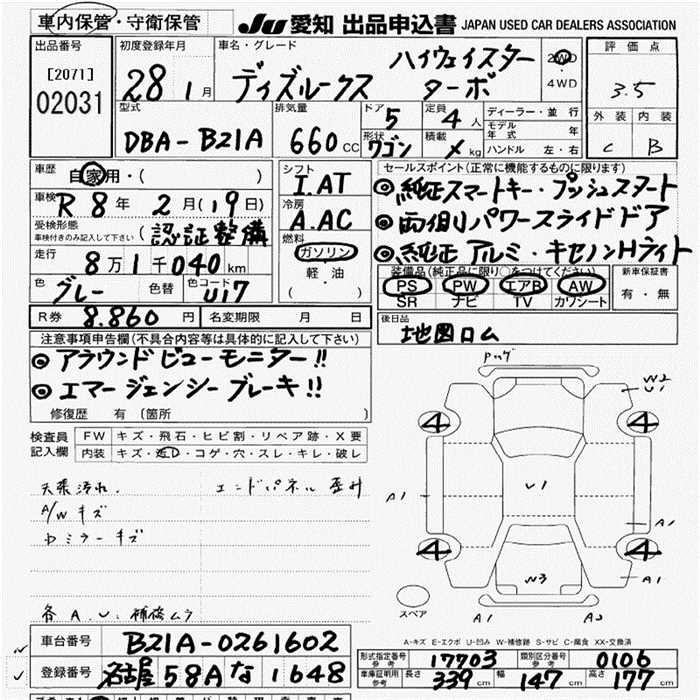 車内保管・守衛保管
JU 愛知 出品申込書 JAPAN USED CAR DEALERS ASSOCIATION
出品番号
[2071]
02031
初度登録年月
28 1月
車名・グレード
ハイウェイスター
ディズルークス ターボ
2WD
・
4WD
評価点
3.5
外装 内装
C B
型式
DBA-B21A
排気量
660 CC
ドア
5
定員
4人
形状
ワゴン
積載
kg
ディーラー・並行
モデル年式 年
ハンドル 左・右
車歴
自家用・( )
車検
R8年 2月(19日)
受検形態
車検付きのみ記入して下さい
(認証整備
走行
8万1千040km
色
グレー
色替
色コード
U17
R券 8.860円
名変期限 月 日
シフト
I.AT
冷房
A.AC
燃料
ガソリン
軽・油
( )
セールスポイント(正常に機能するものに限ります)
◎純正スマートキー・プッシュスタート
◎両側パワースライドドア
◎純正アルミ・キセノンHライト
装備品(純正品に限り○をつけてください)
PS PW エアB AW
SR ナビ TV カワシート
新車保証書
有・無
後日品
地図ロム
注意事項申告欄(不具合内容等は具体的に記入して下さい)
◎アラウンドビューモニター!!
◎エマージェンシーブレーキ!!
修復歴 有 〔箇所 〕
検査員
記入欄
FW キズ・飛石・ヒビ割・リペア跡・X要
内装 キズ・汚レ・コゲ・穴・スレ・キレ・破レ
天張汚れ. エンドパネル歪み
A/Wキズ
ドミラーキズ
各A.U.補修ムラ
Pロゲ
W2
U1
4 4
A1 U1 A1
4 4
W3 A1
スペア
A1 A2
A-キズ E-エクボ U-凹み W-補修跡 S-サビ C-腐食 XX-交換済
車台番号 B21A-0261602
登録番号 名古屋 58A な 1648
形式指定番号 参考 17703
類別区分番号 参考 0106
車庫証明用 参考 長さ 339cm 幅 147cm 高さ 177cm